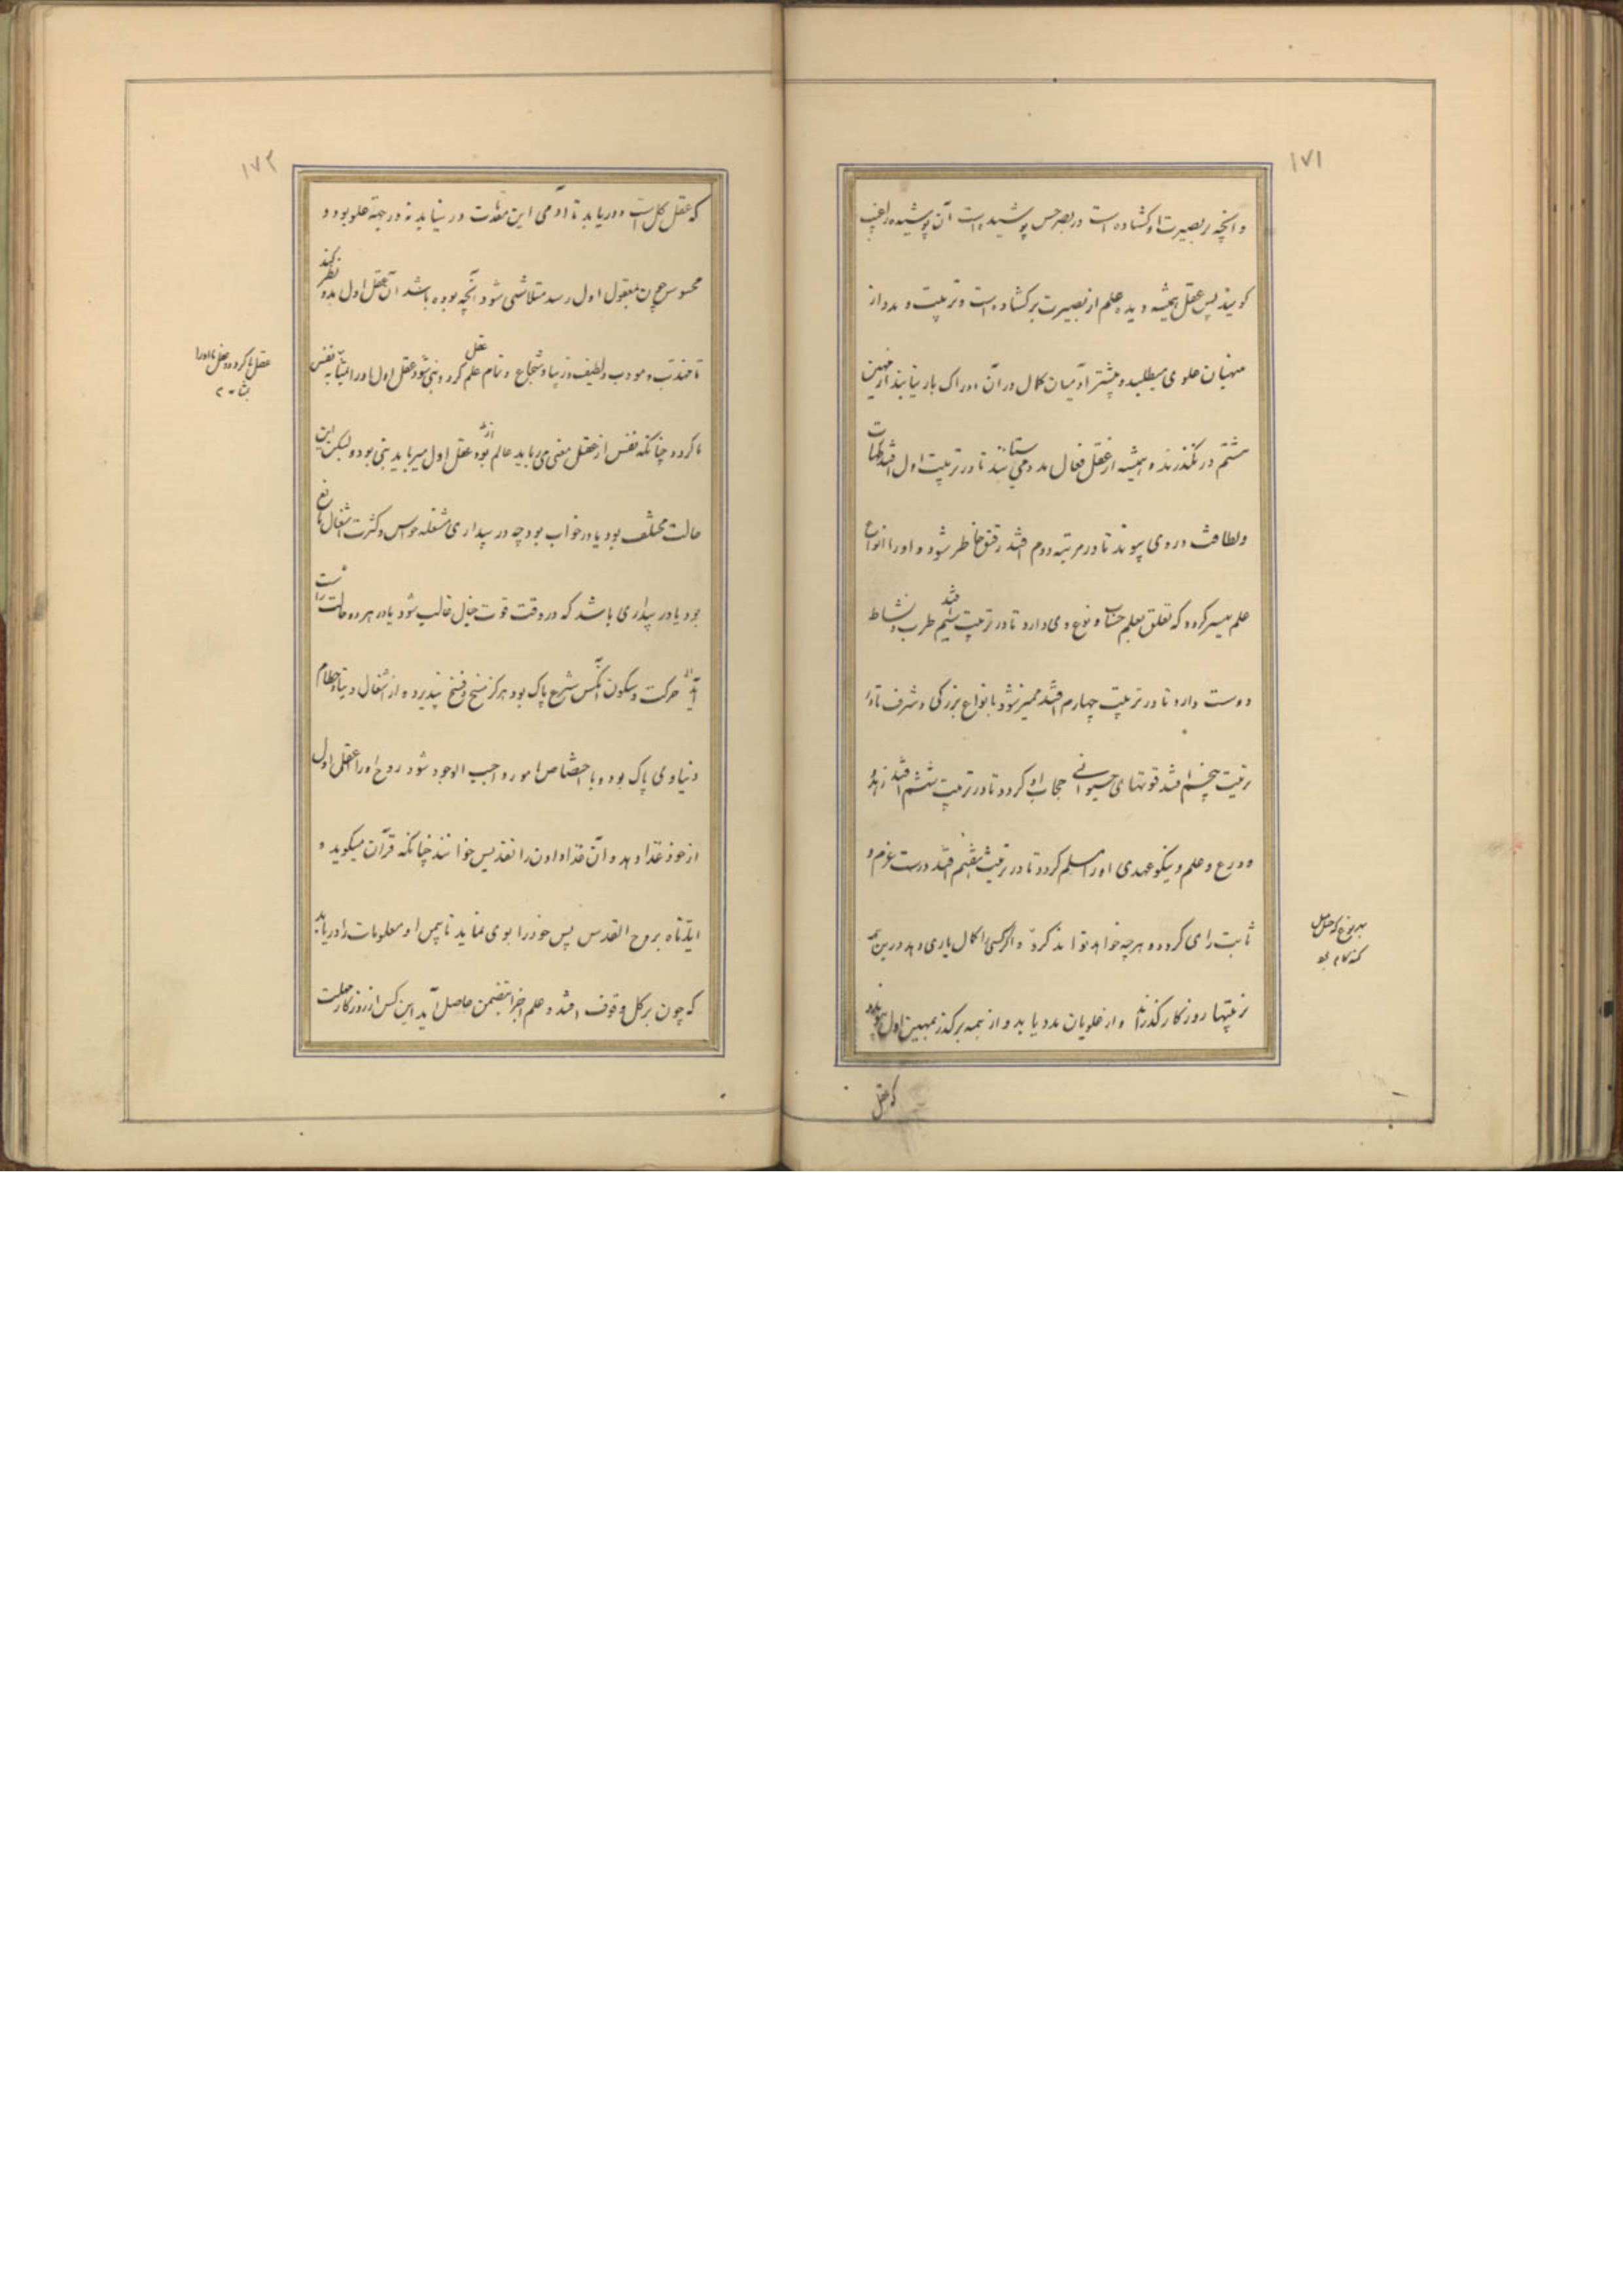 ۱۷۱
و انچه بر بصیرت او کشاده است در بصر حس پوشیده است آن پوشیده را غیب
کویند پس عقل همیشه دیده علم از بصیرت برکشاده است و تربیت و مدد از
مهینان علوی میطلبد و بیشتر آدمیان کمال در آن ادراک بازیابند از مهین
هشتم در نکذرند و همیشه از عقل فعال مدد می ستانند تا در تربیت اول افتد
ولطافت در وی پیوندد تا در مرتبه دوم افتد رقیق خاطر شود و او را انواع
علم میسر کردد که تعلق بعلم حساب و نوع وی دارد تا در تربیت سیم افتد طرب و نشاط
دوست دارد تا در تربیت چهارم افتد ممیز شود بانواع بزرکی و شرف تا در
تربیت پنجم افتد قوتهای حیوانی حجاب او کردد تا در تربیت ششم افتد زهد
و ورع و علم و نیکو عهدی او را مسلم کردد تا در تربیت هفتم افتد درست عزم و
ثابت رای کردد و هرچه خواهد تواند کرد و اکر کسی را کمال یاری دهد درین همه
تربیتها روزکار کذراند و از علویان مدد یابد و از همه برکذرد بمهین اول پیوندد
که عقل
۱۷۲
که عقل کل است و دریابد تا آدمی این مقدمات در نیابد نه در جهة علو بود و
محسوس چون بمعقول اول رسد متلاشی شود آنچه بوده باشد آن عقل اول بدو نظر کند
تا مهذب و مودب و لطیف و زیبا و شجاع و تمام علم کردد و نبی شود عقل اول او را بمثابه نفس
ما کردد چنانکه نفس از عقل معنی می رباید عالم بود از عقل اول میرباید نبی بود ولیکن این
حالت مختلف بود یا در خواب بود چه در بیداری مشغله حواس و کثرت اشغال مانع
بود یا در بیداری باشد که در وقت قوت خیال غالب شود یا در هر دو حالت راست
آید حرکت و سکون آنکس شرع پاک بود هرکز نسخ و فسخ نپذیرد و از اشغال دنیا و حطام
دنیاوی پاک بود و با حضاص امور واجب الوجود شود روح او را عقل اول
از خود غذا دهد و آن غذا دادن را تقدیس خوانند چنانکه قرآن میکوید و
ایدناه بروح القدس پس خود را بوی نماید تا پس او معلومات را دریابد
که چون بر کل وقوف افتد و علم اجزا بتضمن حاصل آید این کس از روزکار مهلت